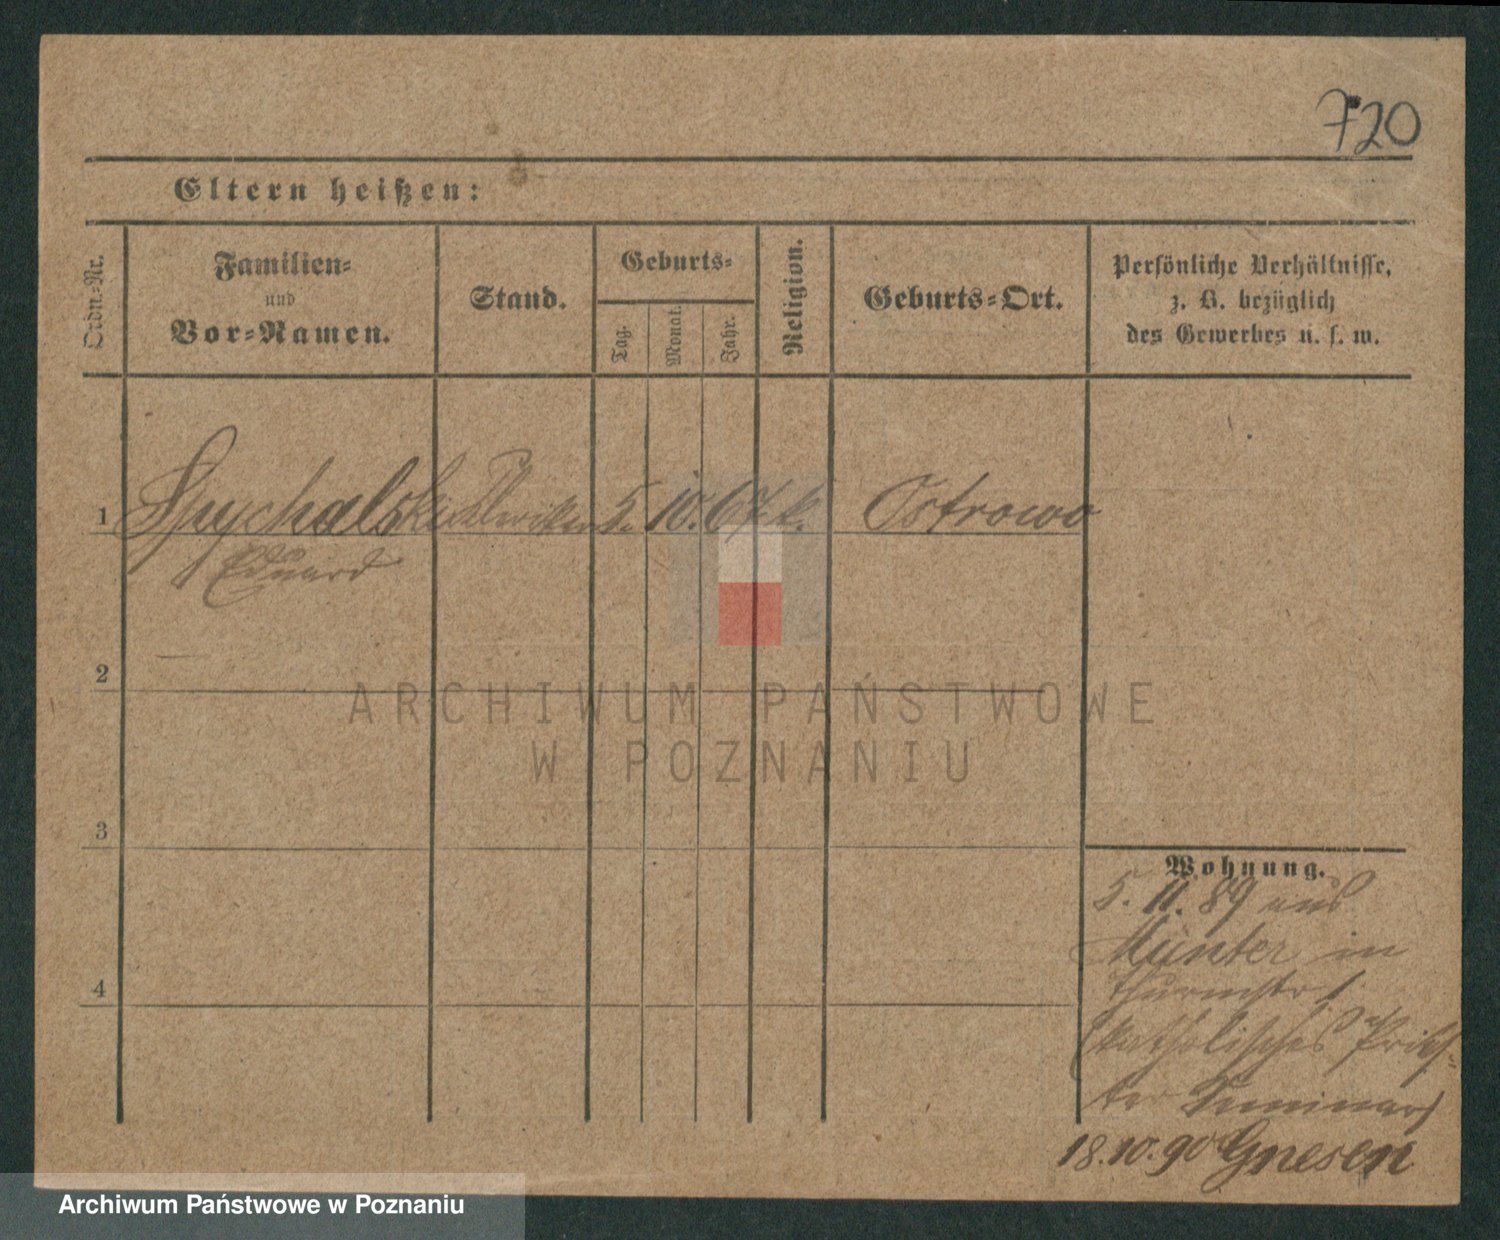 720
Eltern heißen:
Ordn.-Nr.
Familien-
und
Vor-Namen.
Stand.
Geburts-
Tag.
Monat.
Jahr.
Religion.
Geburts-Ort.
Persönliche Verhältnisse,
z. B. bezüglich
des Gewerbes u. s. w.
1 Spychalski 5. 10. 67 k. Ostrowo
Eduard
2
ARCHIWUM PAŃSTWOWE
W POZNANIU
3
4
Wohnung.
5. 11. 89 aus
Münster in
Thurmstr 1
(katholisches Pries-
ter Seminar)
18.10.90 Gnesen
Archiwum Państwowe w Poznaniu